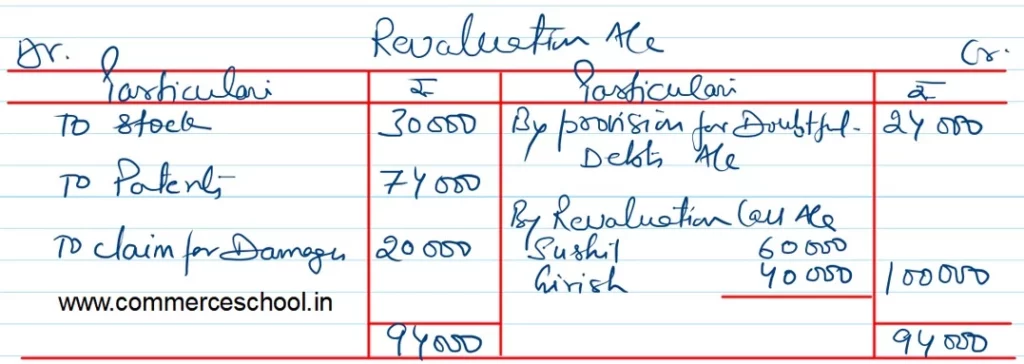 Revaluation A/c
Dr. Cr.
Particulars ₹ Particulars ₹
To Stock 30000 By provision for Doubtful 24000
Debts A/c
To Patents 74000
By Revaluation Loss A/c
To claim for Damages 20000 Sushil 60000
Girish 40000 100000
www.commerceschool.in
94000 94000